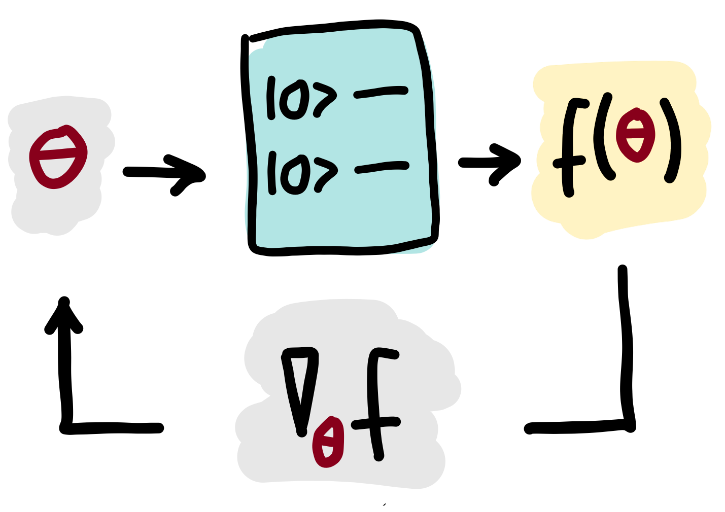 θ
|0⟩ —
|0⟩ —
f(θ)
∇θ f